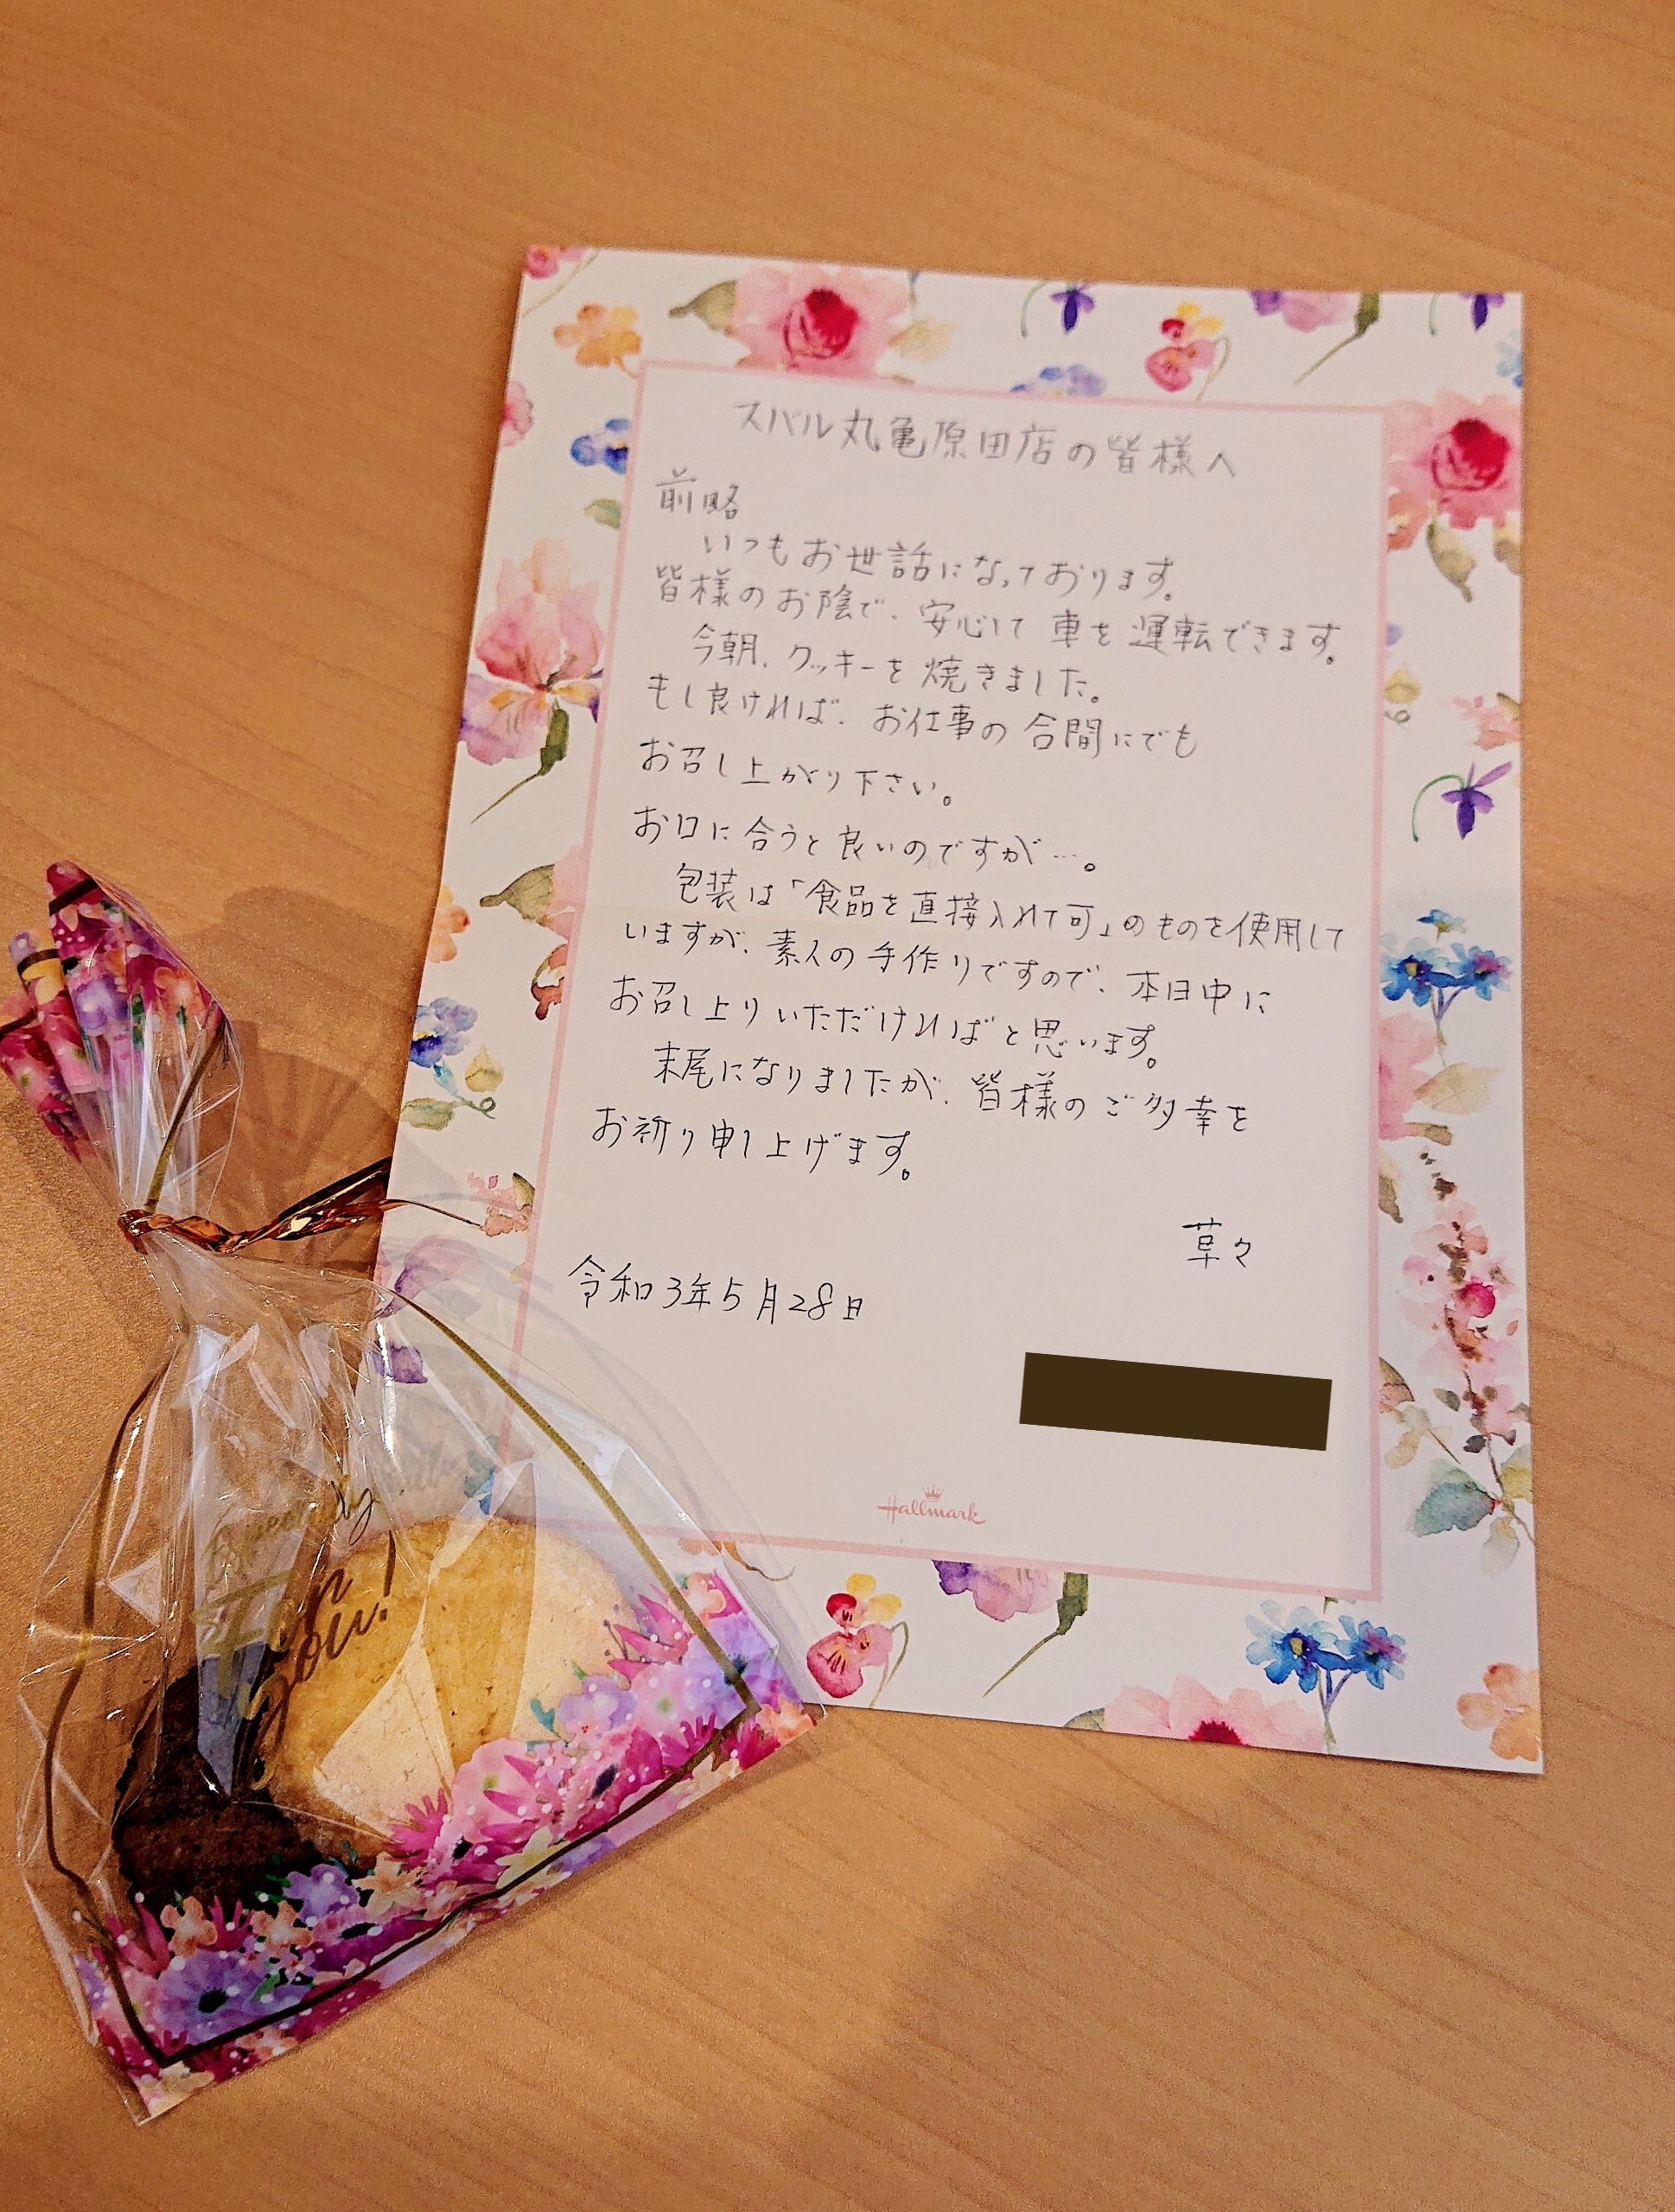 スバル丸亀原田店の皆様へ
前略
いつもお世話になっております。
皆様のお陰で、安心して車を運転できます。
今朝、クッキーを焼きました。
もし良ければ、お仕事の合間にでも
お召し上がり下さい。
お口に合うと良いのですが…。
包装は「食品を直接入れて可」のものを使用して
いますが、素人の手作りですので、本日中に
お召し上りいただければと思います。
末尾になりましたが、皆様のご多幸を
お祈り申し上げます。
草々
令和3年5月28日
Hallmark
Especially
For
you!